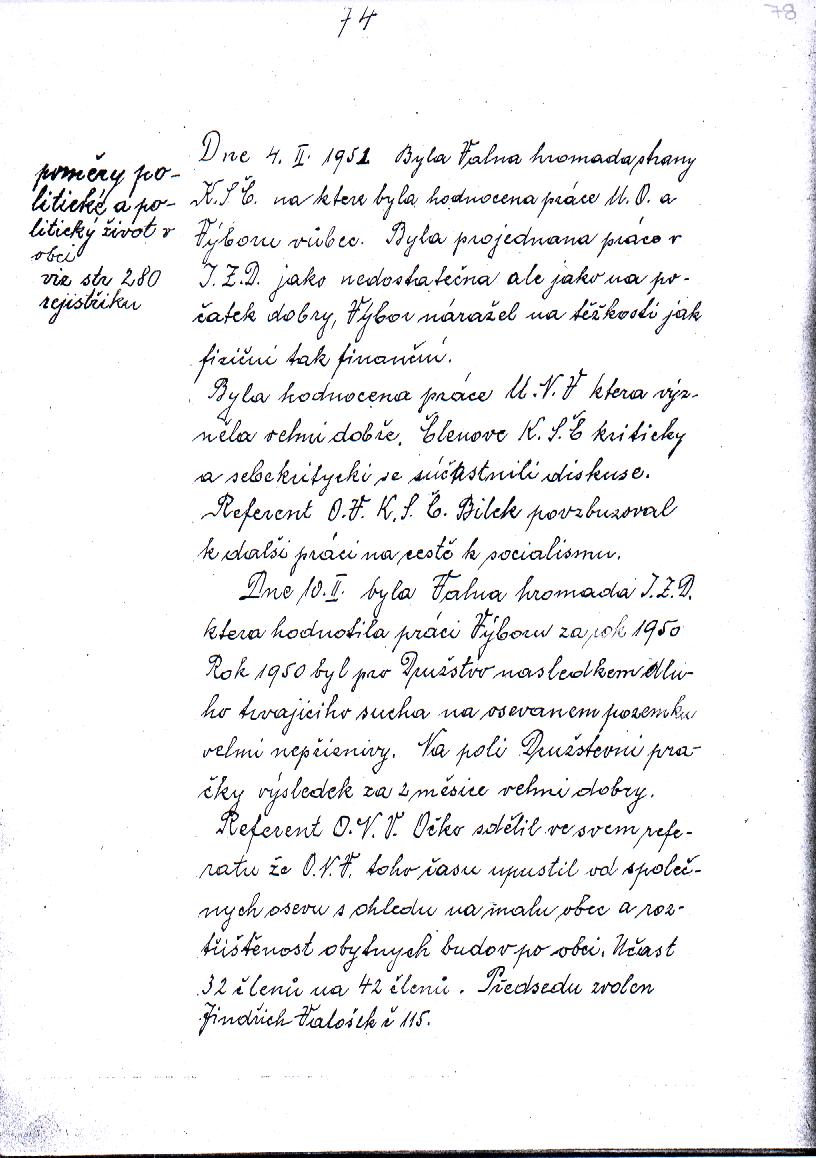 74
78
poměry po-
litické a po-
litický život v
obci
viz str 280
rejistřiku
Dne 4. II. 1951 Byla Valna hromada strany
K.S.Č. na ktere byla hodnocena práce U.O. a
Výboru vůbec. Byla projednana práce v
J.Z.D. jako nedostatečna ale jako na po-
čatek dobry, Výbor náražel na těžkosti jak
fiziční tak finanční.
Byla hodnocena práce M.N.V ktera výz-
něla velmi dobře. Členove K.S.Č kriticky
a sebekritycki se súčastnili diskuse.
Referent O.V. K.S.Č. Bilek povzbuzoval
k dalši práci na cestě k socialismu.
Dne 10. II. byla Valna hromada J.Z.D.
ktera hodnotila práci Výboru za rok 1950
Rok 1950 byl pro Družstvo nasledkem dlu-
ho trvajiciho sucha na osevanem pozemku
velmi nepřiznivy. Na poli Družstevni pra-
čky výsledek za 2 měsice velmi dobry.
Referent O.N.V. Očko sdělil ve svem refe-
ratu že O.N.V. toho času upustil od společ-
nych osevu s ohledu na malu obec a roz-
třištěnost obytnych budov po obci. Učast
32 členů na 42 členů. Předsedu zvolen
Jindřich Valošek č 115.